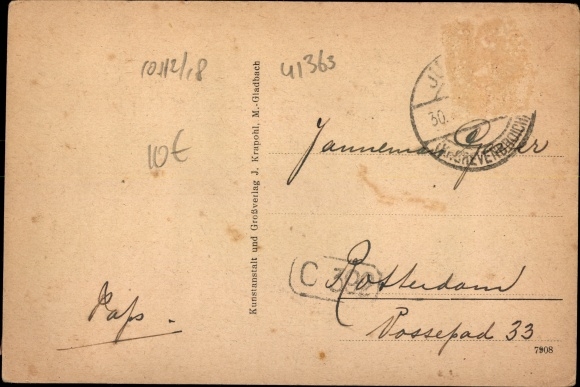 10112/18
41365
10€
Kunstanstalt und Großverlag J. Krapohl, M.-Gladbach
30.
(Kr. GREVENBROICH)
Jannemann
C 390
Rotterdam
Vossepad 33
Paps.
7908